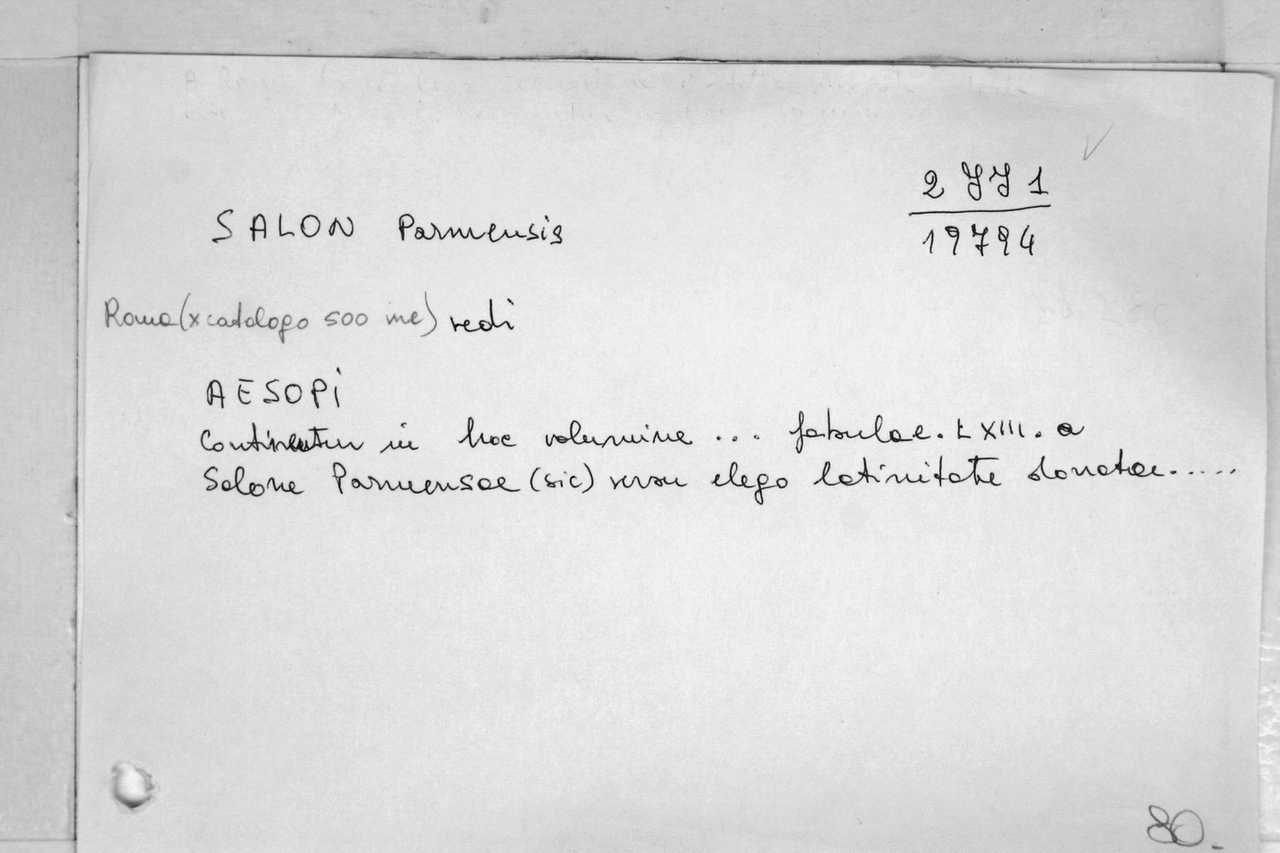 2 JJ 1
SALON Parmensis
19794
Roma (x catalogo 500 me) vedi
AESOPi
Continentur in hoc volumine ... fabulae. LXIII. a
Salone Parmensae (sic) versu elego latinitate donatae.....
80.